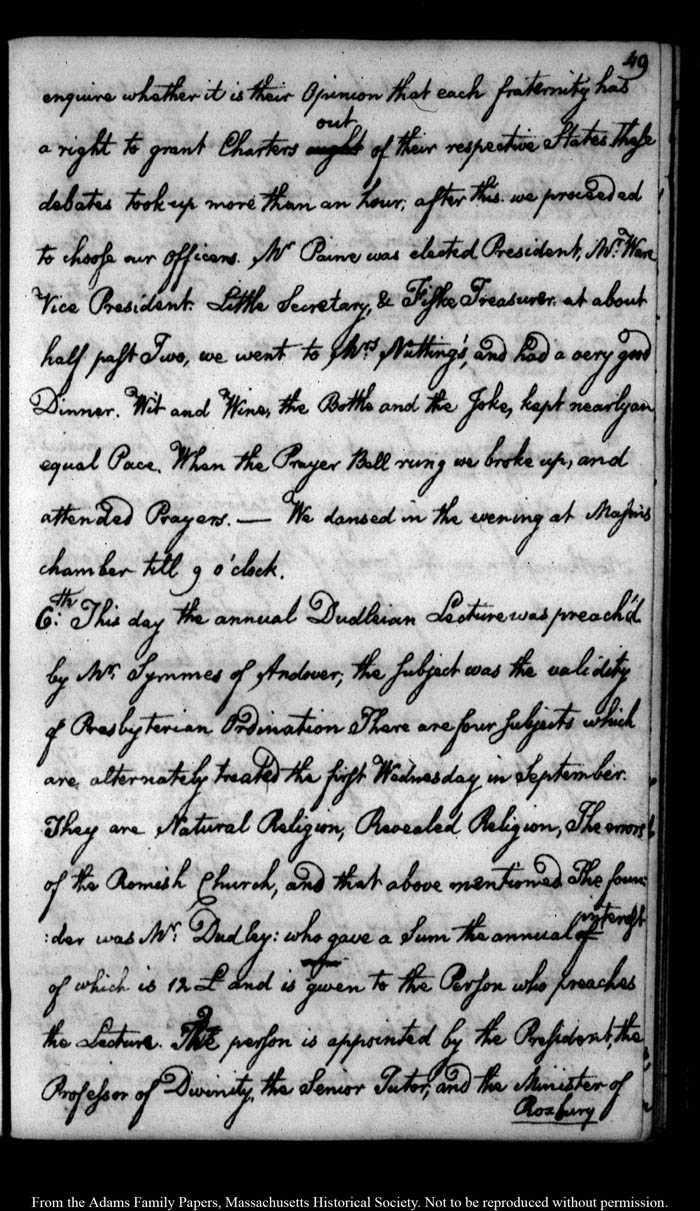 49
enquire whether it is their Opinion that each fraternity has
out
a right to grant Charters ought of their respective States. these
debates took up more than an hour; after this we proceeded
to choose our officers. Mr. Paine was elected President, Mr. Ware
Vice President. Little Secretary, & Fiske Treasurer. at about
half past Two, we went to Mrs. Nutting's, and had a very good
Dinner. Wit and Wine, the Bottle and the Joke, kept nearly an
equal Pace. When the Prayer Bell rung we broke up, and
attended Prayers. — We dansed in the evening at Mason's
chamber till 9 o'clock.
6.th This day the annual Dudleian Lecture was preach'd
by Mr. Symmes of Andover; the subject was the validity
of Presbyterian Ordination There are four subjects which
are alternately treated the first Wednesday in September.
They are Natural Religion, Revealed Religion, The errors
of the Romish Church, and that above mentioned The foun-
interest
:der was Mr. Dudley: who gave a Sum the annual of
of which is 12 £ and is given to the Person who preaches
the Lecture. The person is appointed by the President, the
Professor of Divinity, the Senior Tutor, and the Minister of
Roxbury
From the Adams Family Papers, Massachusetts Historical Society. Not to be reproduced without permission.